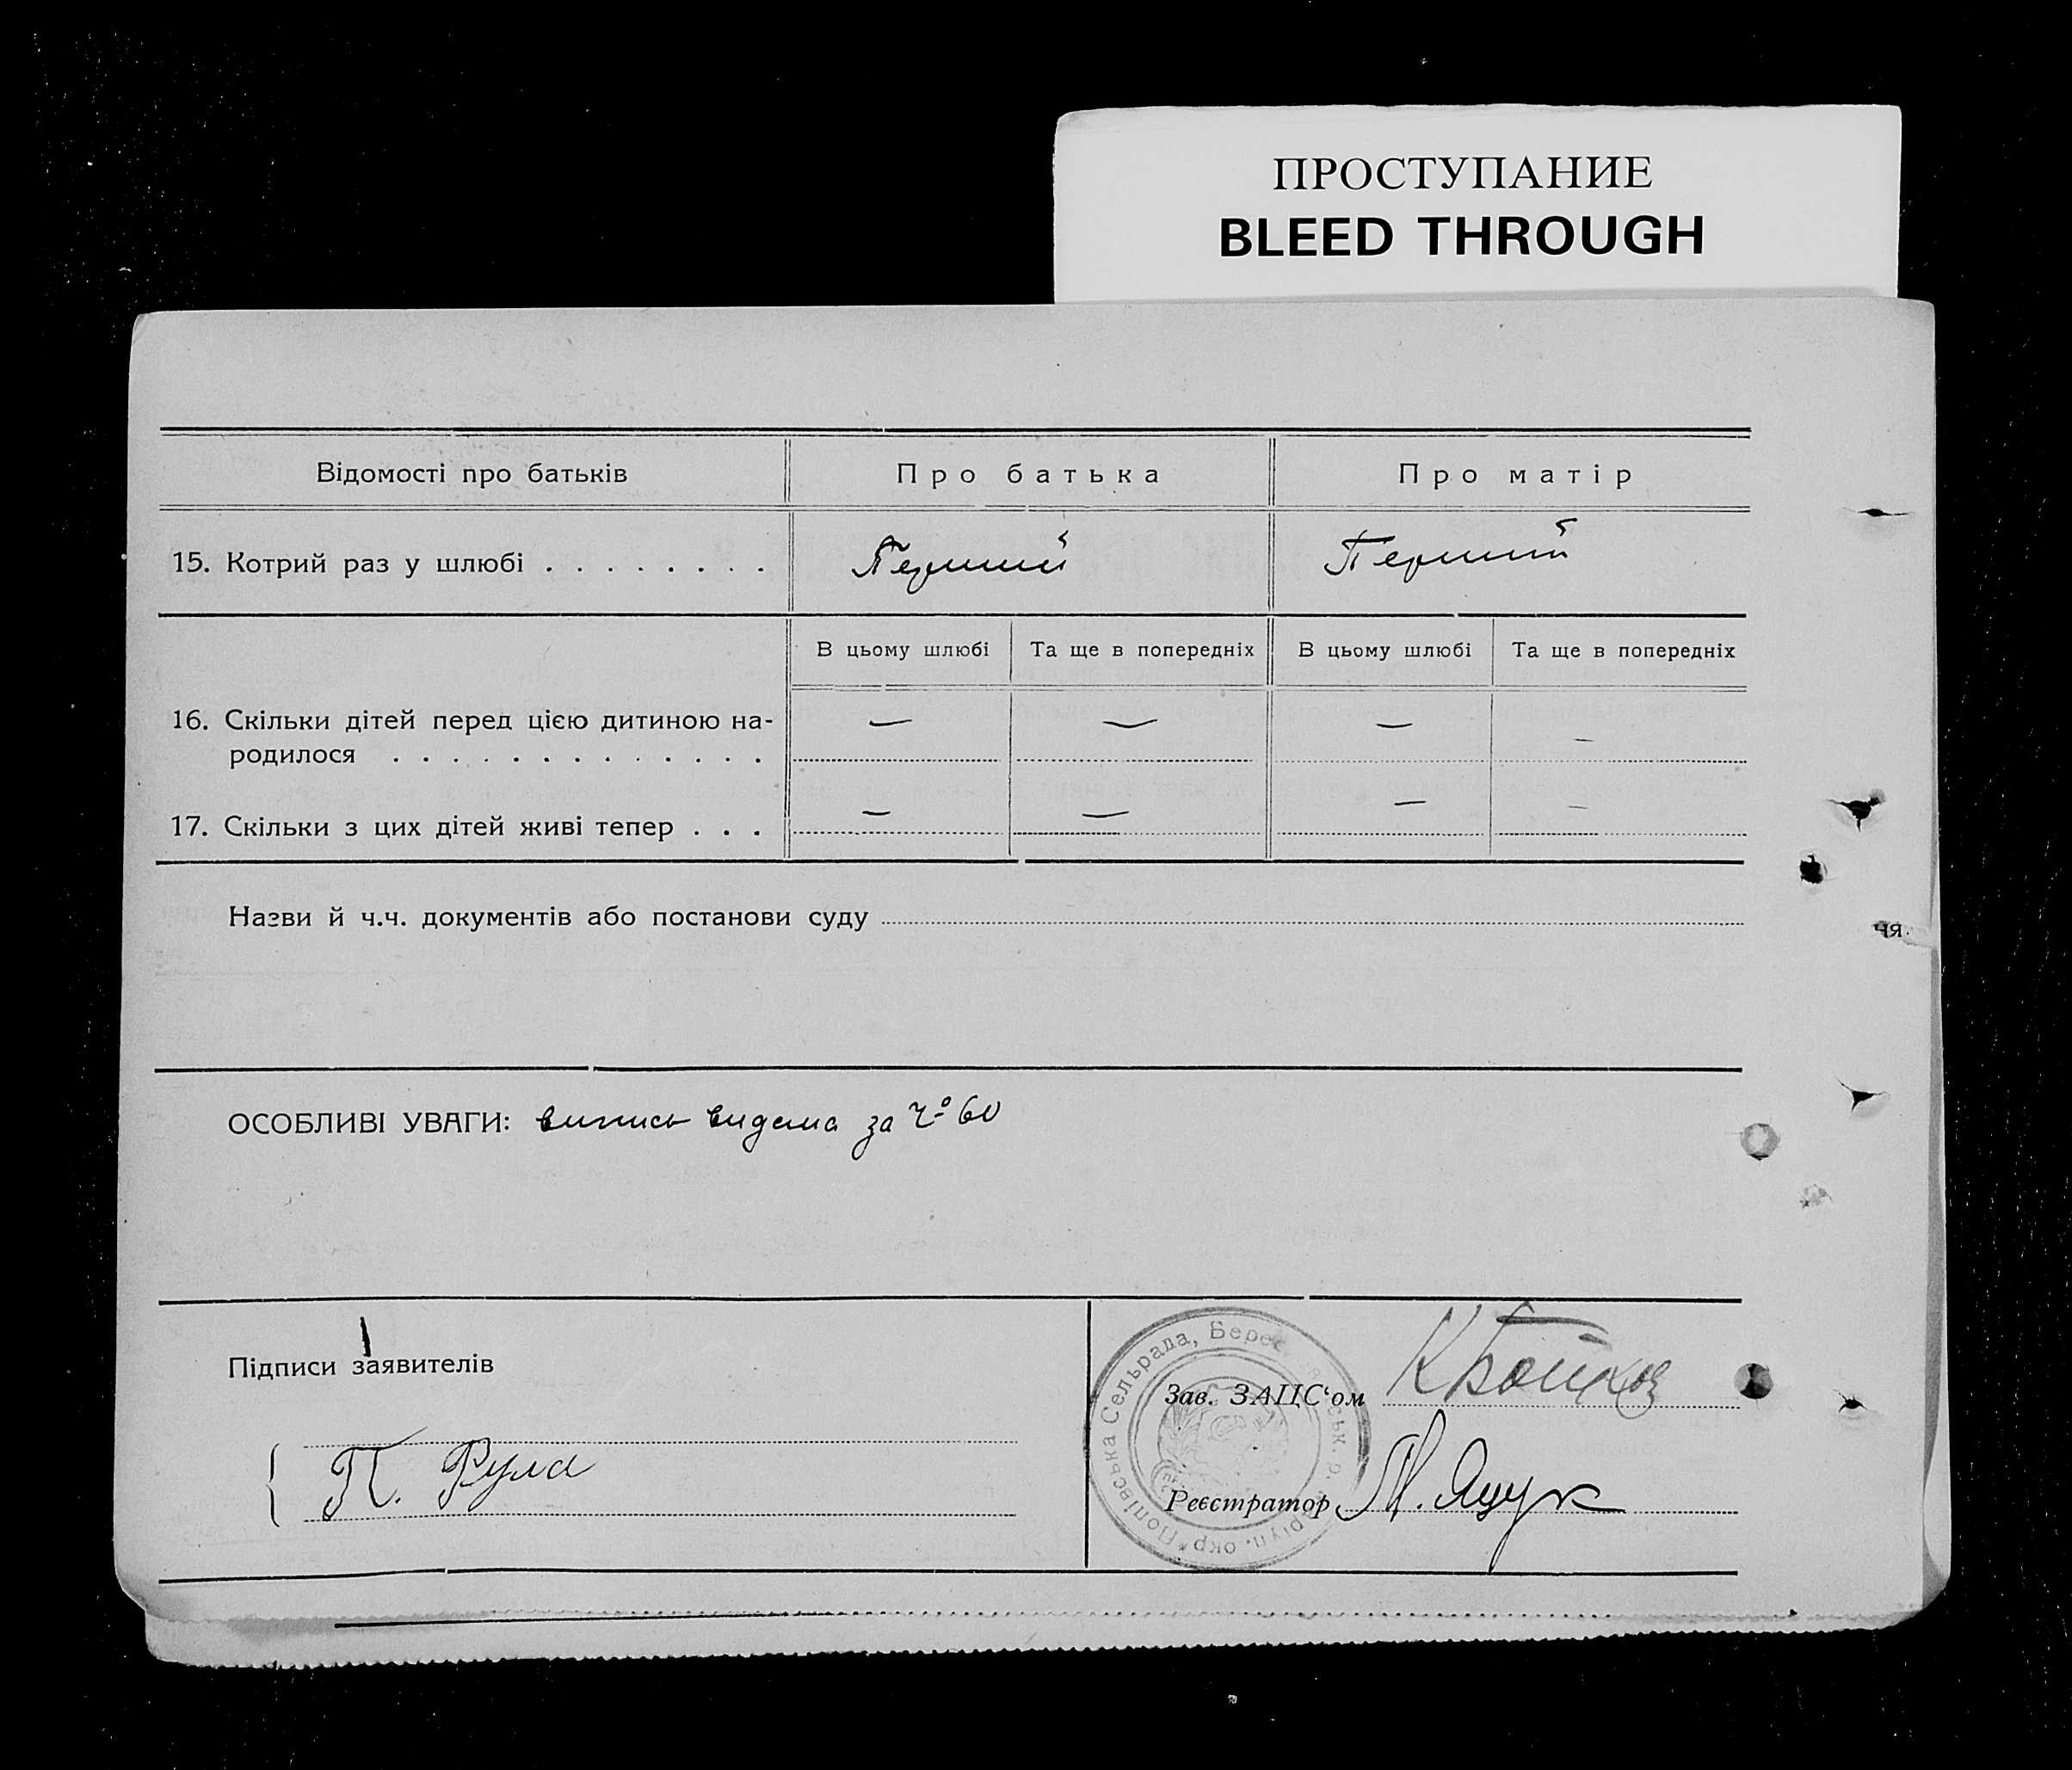 ПРОСТУПАНИЕ
BLEED THROUGH
Відомості про батьків
Про батька
Про матір
15. Котрий раз у шлюбі . . . . . . . .
Перший
Перший
В цьому шлюбі
Та ще в попередніх
В цьому шлюбі
Та ще в попередніх
16. Скільки дітей перед цією дитиною на-
— — — —
родилося . . . . . . . . . . . . .
17. Скільки з цих дітей живі тепер . . .
— — — —
Назви й ч.ч. документів або постанови суду
чя.
ОСОБЛИВІ УВАГИ: випись видана за Ч° 60
Підписи заявителів
П. Рула
Зав. ЗАЦС‘ом
Реєстратор Яцук
Попівська Сельрада, окр.